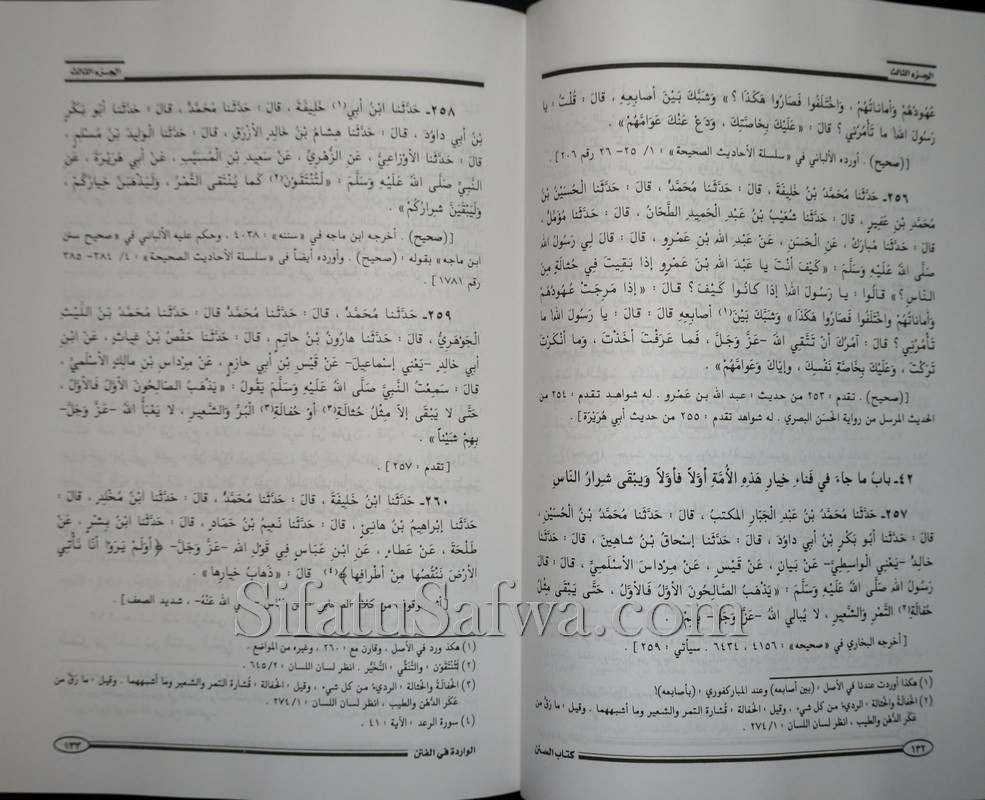 الجزء الثالث
عُهُودُهُمْ وَأَماناتُهُمْ ، وَاخْتَلَفُوا فَصَارُوا هَكَذَا ؟ » وَشَبَّكَ بَيْنَ أَصابِعِهِ ، قالَ : قُلْتُ : يا
رَسُولَ الله! ما تَأْمُرُنِي ؟ قالَ : « عَلَيْكَ بِخَاصَّتِكَ ، وَدَعْ عَنْكَ عَوَامَّهُمْ » .
[(صحيح) . أورده الألباني في « سلسلة الأحاديث الصحيحة » : ١/ ٢٥- ٢٦ رقم ٢٠٦] .
٢٥٦ـ حَدَّثَنا مُحَمَّدُ بْنُ خَلِيفَةَ ، قالَ : حَدَّثَنا مُحَمَّدٌ ، قالَ : حَدَّثَنا الْحُسَيْنُ بْنُ
مُحَمَّدِ بْنِ عَفِيرٍ ، قالَ : حَدَّثَنا شُعَيْبُ بْنُ عَبْدِ الْحَمِيدِ الطَّحَّانُ ، قالَ : حَدَّثَنا مُؤَمَّلُ ،
قالَ : حَدَّثَنا مُبارَكُ ، عَنِ الْحَسَنِ ، عَنْ عَبْدِ الله بْنِ عَمْرٍو ، قالَ : قالَ لِي رَسُولُ الله
صَلَّى اللهُ عَلَيْهِ وَسَلَّمَ : « كَيْفَ أَنْتَ يا عَبْدَ الله بْنَ عَمْرٍو إِذا بَقِيتَ فِي حُثالَةٍ مِنَ
النَّاسِ ؟ » قالُوا : يا رَسُولَ الله! إِذا كانُوا كَيْفَ ؟ قالَ : « إِذا مَرِجَتْ عُهُودُهُمْ
وَأَماناتُهُمْ واخْتَلَفُوا فَصارُوا هَكَذا » وَشَبَّكَ بَيْنَ(١) أَصابِعِهِ قالَ : يا رَسُولَ الله! ما
تَأْمُرُنِي ؟ قالَ : آمُرُكَ أَنْ تَتَّقِيَ الله -عَزَّ وَجَلَّ- ، فَما عَرَفْتَ أَخَذْتَ ، وَما أَنْكَرْتَ
تَرَكْتَ ، وَعَلَيْكَ بِخَاصَّةِ نَفْسِكَ ، وإِيَّاكَ وَعَوامَّهُمْ » .
[(صحيح) . تقدم : ٢٥٣ من حديث : عبد الله بن عَمْرو . له شواهد تقدم : ٢٥٤ من
الحديث المرسل من رواية الحَسَن البصري . له شواهد تقدم : ٢٥٥ من حديث أبي هُرَيْرَة] .
٤٢ـ بابُ ما جاءَ في فَناءِ خِيارِ هَذِهِ الأُمَّةِ أوَّلاً فأوَّلاً وَيبْقَى شِرارُ النَّاسِ
٢٥٧ـ حَدَّثَنا مُحَمَّدُ بْنُ عَبْدِ الْجَبَّارِ المكتبُ ، قالَ : حَدَّثَنا مُحَمَّدُ بْنُ الْحُسَيْنِ ،
قالَ : حَدَّثَنا أَبُو بَكْرِ بْنُ أَبِي داوُدَ ، قالَ : حَدَّثَنا إِسْحاقُ بْنُ شاهِينَ ، قالَ : حَدَّثَنا
خالِدٌ -يَعْنِي الْواسِطِيَّ- عَنْ بَيانٍ ، عَنْ قَيْسٍ ، عَنْ مِرْداسٍ الأَسْلَمِيِّ ، قالَ : قالَ
رَسُولُ الله صَلَّى اللهُ عَلَيْهِ وَسَلَّمَ : « يَذْهَبُ الصَّالِحُونَ الأَوَّلُ فَالأَوَّلُ ، حَتَّى يَبْقَى مِثْلُ
حُفالَةِ(٢) التَّمْرِ وَالشَّعِيرِ ، لا يُبالِي اللهُ -عَزَّ وَجَلَّ- بِهِمْ » .
[ أخرجه البخاري في « صحيحه » : ٤١٥٦ ، ٦٤٣٤ . سيأتي : ٢٥٩ ] .
(١) هكذا أوردت عندنا في الأصل : (بين أصابعه) وعند المباركفوري : (بأصابعه)!
(٢) الحُفالَةُ والحُثالة : الرديءُ من كل شيء ، وقيل : الحُفالة : قُشارة التمر والشعير وما أشبههما . وقيل : ما رَقَّ من
عَكَر الدُّهن والطيب ، انظر لسان اللسان : ٢٧٤/١ .
١٣٢
كتاب السنن
الجزء الثالث
٢٥٨ـ حَدَّثَنا ابْنُ أَبِي(١) خَلِيفَةَ ، قالَ : حَدَّثَنا مُحَمَّدٌ ، قالَ : حَدَّثَنا أَبُو بَكْرِ
بْنُ أَبِي داوُدَ ، قالَ : حَدَّثَنا هِشامُ بْنُ خالِدٍ الأَزْرَقُ ، قالَ : حَدَّثَنا الْوَلِيدُ بْنُ مُسْلِمٍ ،
قالَ : حَدَّثَنا الأَوْزاعِيُّ ، عَنِ الزُّهْرِيِّ ، عَنْ سَعِيدِ بْنِ الْمُسَيَّبِ ، عَنْ أَبِي هُرَيْرَةَ ، عَنِ
النَّبِيِّ صَلَّى اللهُ عَلَيْهِ وَسَلَّمَ : « لَتُنْتَقَوْنَ(٢) كَما يُنْتَقَى التَّمْرُ ، وَلَيَذْهَبَنَّ خِيارُكُمْ ،
وَلَيَبْقَيَنَّ شِرارُكُمْ » .
[(صحيح) . أخرجه ابن ماجه في « سننه » : ٤٠٣٨ ، وحكم عليه الألباني في « صحيح سنن
ابن ماجه » بقوله : (صحيح) . وأورده أيضاً في « سلسلة الأحاديث الصحيحة » : ٤/ ٣٨٤- ٣٨٥
رقم ١٧٨١] .
٢٥٩ـ حَدَّثَنا مُحَمَّدٌ ، قالَ : حَدَّثَنا مُحَمَّدٌ قالَ : حَدَّثَنا مُحَمَّدُ بْنُ اللَّيْثِ
الْجَوْهَرِيُّ ، قالَ : حَدَّثَنا هارُونُ بْنُ حاتِمٍ ، قالَ : حَدَّثَنا حَفْصُ بْنُ غِياثٍ ، عَنْ ابْنِ
أَبِي خالِدٍ -يَعْنِي إِسماعيلَ- عَنْ قَيْسِ بْنِ أَبِي حازِمٍ ، عَنْ مِرْداسِ بْنِ مالِكٍ الأَسْلَمِيِّ ،
قالَ : سَمِعْتُ النَّبِيَّ صَلَّى اللهُ عَلَيْهِ وَسَلَّمَ يَقُولُ : « يَذْهَبُ الصَّالِحُونَ الأَوَّلَ فَالأَوَّلَ ،
حَتَّى لا يَبْقَى إِلاَّ مِثْلُ حُثالَةِ(٣) أَوْ حُفالَةِ(٣) الْبُرِّ وَالشَّعِيرِ ، لا يَعْبَأُ اللهُ -عَزَّ وَجَلَّ-
بِهِمْ شَيْئاً » .
[ تقدم : ٢٥٧ ] .
٢٦٠ـ حَدَّثَنا ابْنُ خَلِيفَةَ ، قالَ : حَدَّثَنا مُحَمَّدٌ ، قالَ : حَدَّثَنا ابْنُ مُخْلَدٍ ، قالَ :
حَدَّثَنا إِبْراهِيمُ بْنُ هانِئٍ ، قالَ : حَدَّثَنا نُعَيْمُ بْنُ حَمَّادٍ ، قالَ : حَدَّثَنا ابْنُ بِشْرٍ ، عَنْ
طَلْحَةَ ، عَنْ عَطاءٍ ، عَنِ ابْنِ عَبَّاسٍ فِي قَوْلِ الله -عَزَّ وَجَلَّ- ﴿أَوَلَمْ يَرَوْا أَنَّا نَأْتِي
الأَرْضَ نَنْقُصُها مِنْ أَطْرافِها﴾(٤) قالَ : « ذَهابُ خِيارِها » .
موقوف من كلام ابن عباس الله عَنْهُ- ، شديد الضعف] .
(١) هكذ ورد في الأصل ، وقارن مع : ٢٦٠ ، وغيره من المواضع .
(٢) لَتُنْتَقَوْنَ : والتنَقِّي : التَّخَيُّر . انظر لسان اللسان : ٦٤٥/٢ .
(٣) الحُفالَةُ والحُثالة : الرديءُ من كل شيء ، وقيل : الحُفالة : قُشارة التمر والشعير وما أشبههما . وقيل : ما رَقَّ من
عَكَر الدُّهن والطيب ، انظر لسان اللسان : ٢٧٤/١ .
(٤) سورة الرعد : الآية : ٤١ .
الواردة في الفتن
١٣٣
SifatuSafwa.com